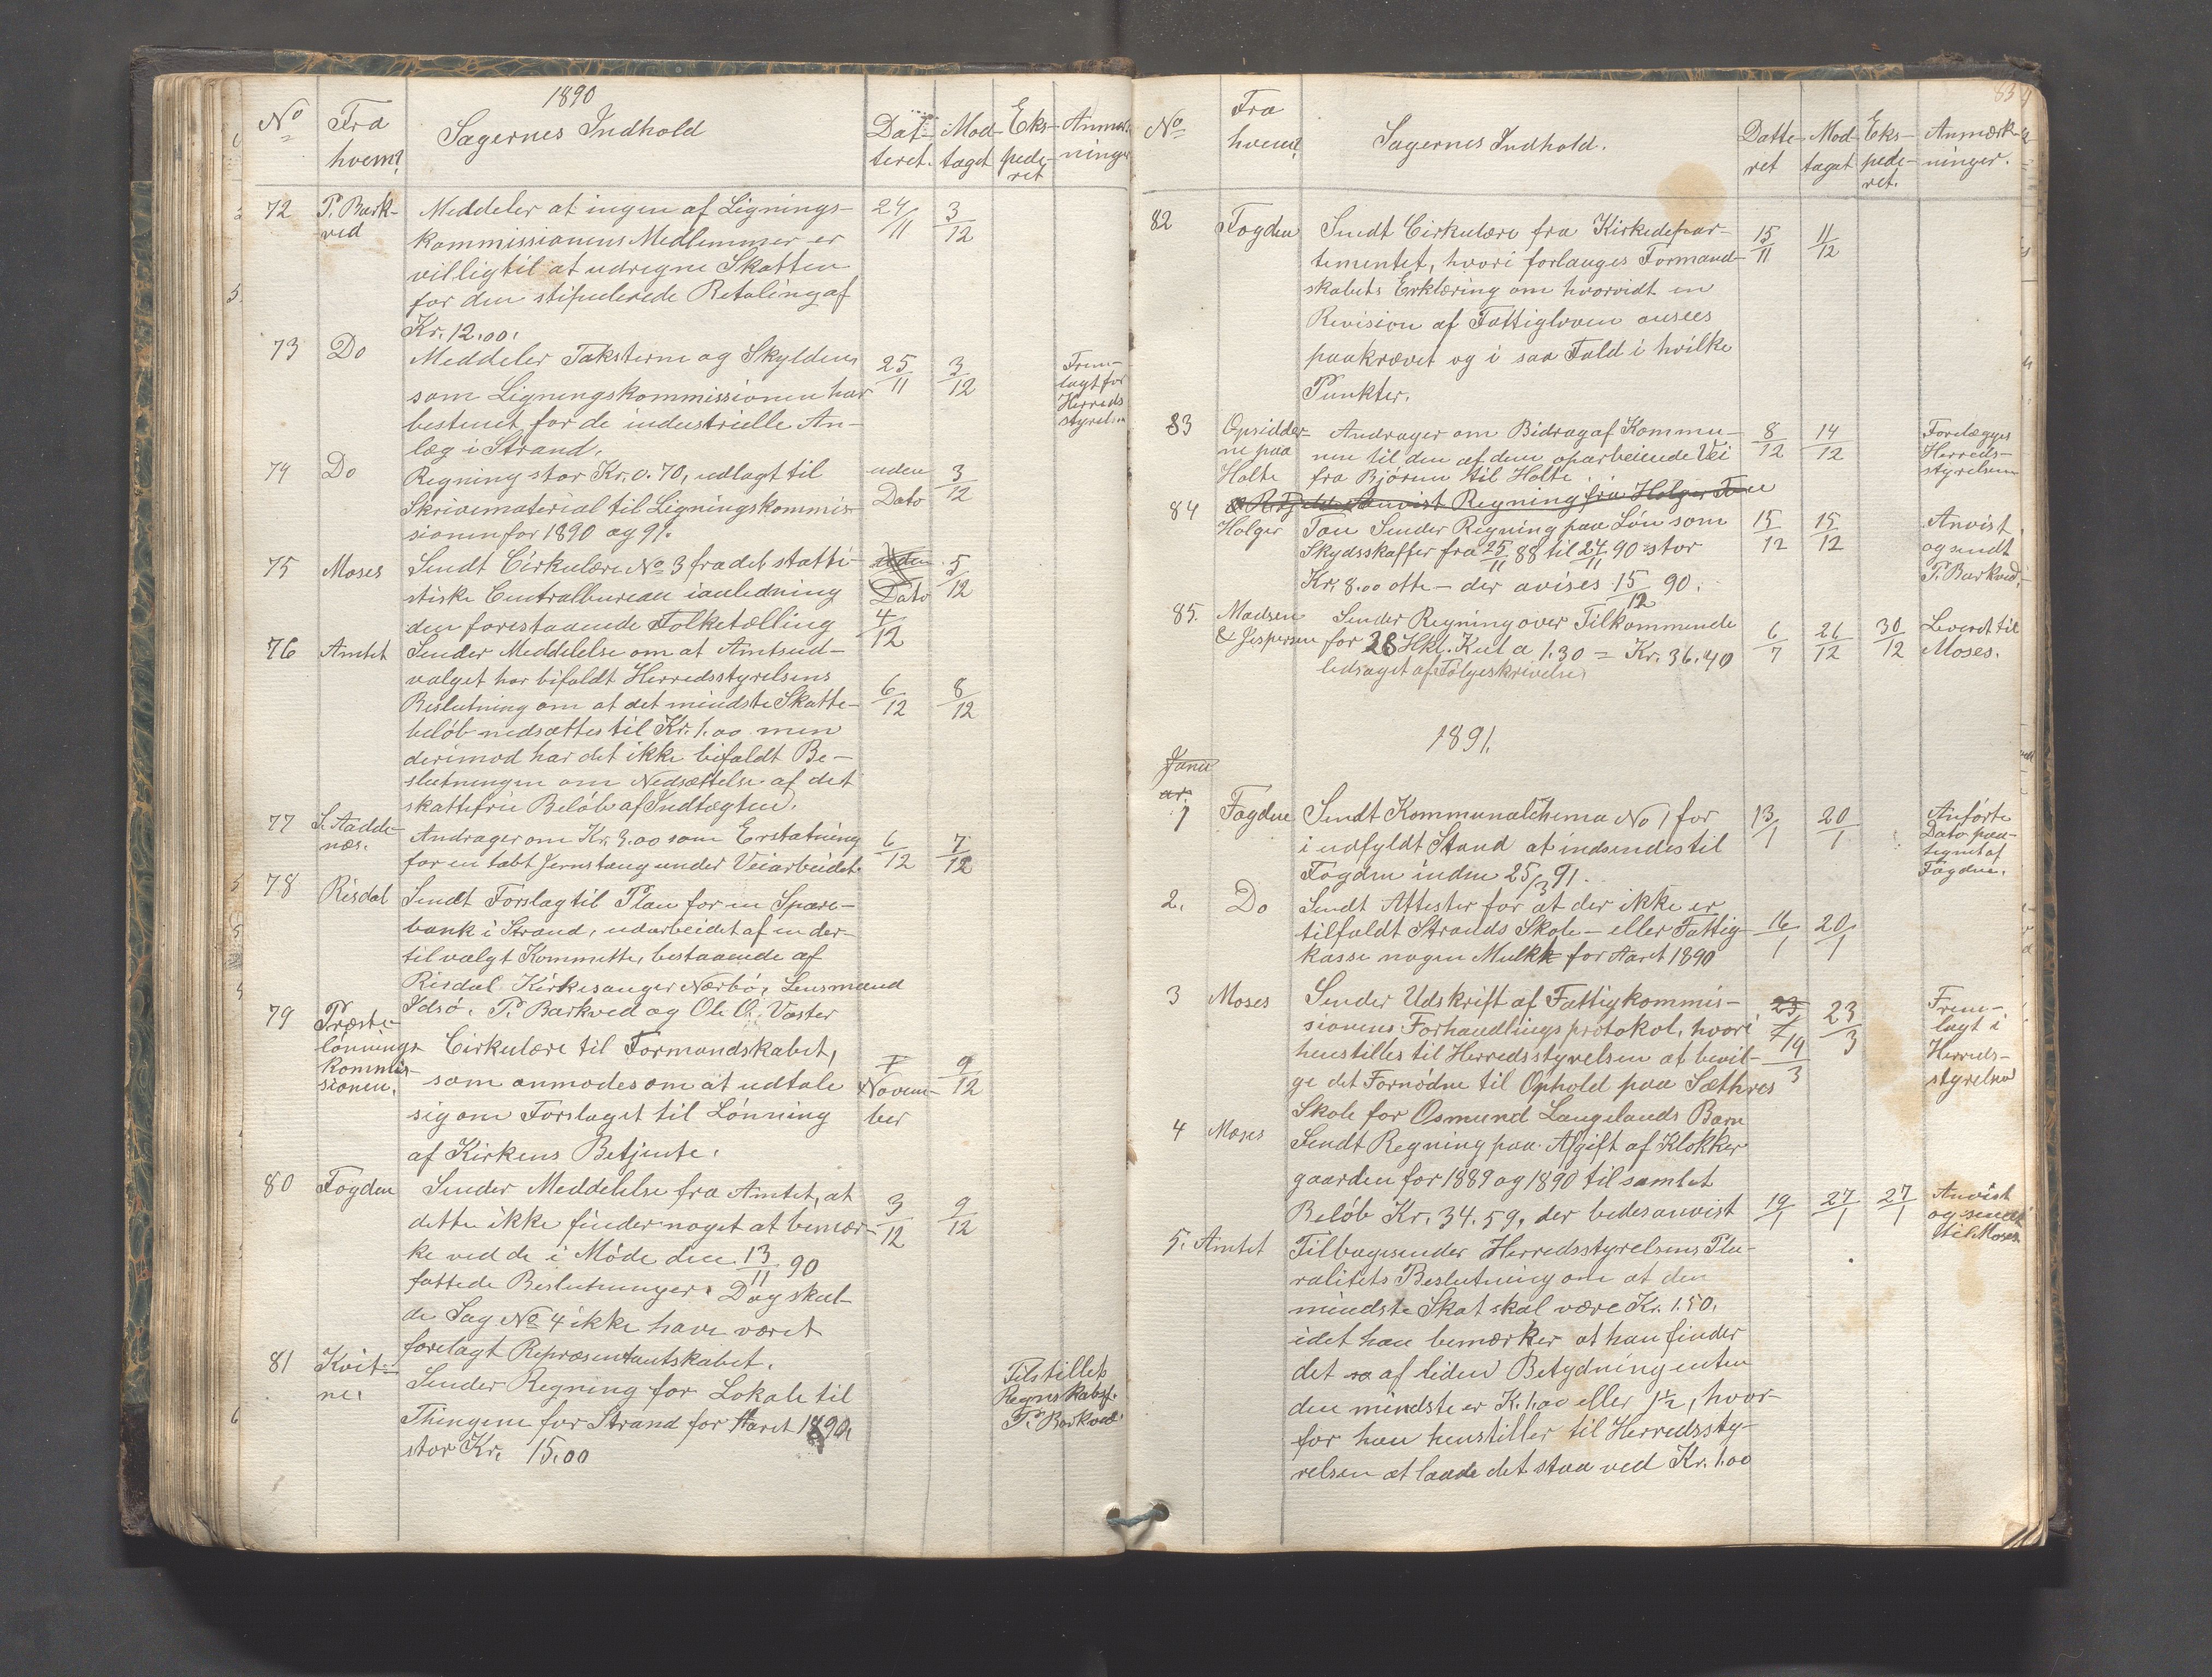 1890
No Fra hvem? Sagernes Indhold Dat-teret. Mod-taget Eks-pede-ret Anmær-ninger
72 P. Bark-ved Meddeler at ingen af Lignings- 24/11 3/12
kommissionens Medlemmer er
villig til at udregne Skatten
for den stipulerede Betaling af
Kr. 12.00.
73 Do Meddeler Taksterne og Skylden 25/11 3/12 Frem-
som Ligningskommissionen har lagt for
bestemt for de industrielle An- Herreds
læg i Strand. styrelsen
74 Do Regning stor Kr. 0.70, udlagt til uden 3/12
Skrivematerial til Ligningskommis- Dato
sionen for 1890 og 91.
75 Moses Sendt Cirkulære No 3 fra det statti- uden 5/12
stiske Centralbureau ianledning Dato
den forestaaende Folketælling 4/12
76 Amtet Sender Meddelelse om at Amtsud-
valget har bifaldt Herredsstyrelsens
Beslutning om at det mindste Skatte- 6/12 8/12
beløb nedsættes til Kr. 1.00 men
derimod har det ikke bifaldt Be-
slutningen om Nedsættelse af det
skattefrie Beløb af Indtægten.
77 S. Aadde- Andrager om Kr. 3.00 som Erstatning 6/12 7/12
næs. for en tabt Jernstang under Veiarbeidet.
78 Risdal Sendt Forslag til Plan for en Spare-
bank i Strand, udarbeidet af en der-
til valgt Kommitte, bestaaende af
Risdal Kirkesanger Nærbø, Lensmand
Idsø, P. Barkved og Ole O. Vaster
79 Præste- Cirkulære til Formandskabet,
lønnings
kommis- som anmodes om at udtale Novem- 9/12
sionen. sig om Forslaget til Lønning ber
af Kirkens Betjente.
80 Fogden Sender Meddelelse fra Amtet, at 3/12 9/12
dette ikke finder noget at bemær-
ke ved de i Møde den 13/11 90
fattede Beslutninger. Dog skul-
de Sag No 4 ikke have været
forelagt Repræsentantskabet.
81 Kvit- Sender Regning for Lokale til Tilstillet
ne. Thingene for Strand for Aaret 1890 Regnskabsf.
stor Kr. 15.00 P. Barkved
83
No Fra hvem? Sagernes Indhold. Datte-ret Mod-taget Eks-pede-ret. Anmærk-ninger.
82 Fogden Sendt Cirkulære fra Kirkedepar- 15/11 11/12
tementet, hvori forlanges Formand-
skabets Erklæring om hvorvidt en
Revision af Fattigloven ansees
paakrævet og i saa Fald i hvilke
Punkter.
83 Opsidder- Andrager om Bidrag af Kommu- 8/12 14/12 Forelægges
ne paa nen til den af dem oparbeidende Vei Herreds-
Holte fra Bjørum til Holte. styrelsen
84 Anvist Regning fra Holger Tou
Holger Tou Sender Regning paa Løn som 15/12 15/12 Anvist
Skydsskaffer fra 25/11 88 til 24/11 90 stor og sendt
Kr. 8.00 otte - der avises 15/12 90. P. Barkved.
85. Madsen Sender Regning over Tilkommende 6/7 26/12 30/12 Leveret til
& Jespersen for 28 Hkl. Kul a 1.30 = Kr. 36.40 Moses.
ledsaget af Følgeskrivelse
1891.
Janu
ar.
1 Fogden Sendt Kommunalchema No 1 for 13/1 20/1 Anførte
i udfyldt Stand at indsendes til Dato paa-
Fogden inden 25/3 91. tegnet af
Fogden.
2. Do Sendt Attester for at der ikke er
tilfaldt Strands Skole- eller Fattig- 16/1 20/1
kasse nogen Mulkt for Aaret 1890
3 Moses Sender Udskrift af Fattigkommis- 23/ 23/3 Frem-
sionens Forhandlingsprotokol, hvori lagt i
henstilles til Herredsstyrelsen at bevil- 19/3 Herreds-
ge det Fornødne til Ophold paa Sæthres styrelsen
Skole for Osmund Langelands Barn
4 Moses Sendt Regning paa Afgift af Klokker
gaarden for 1889 og 1890 tilsamlet
Beløb Kr. 34.59, der bedes anvist 19/1 27/1 27/1 Anvist
og sendt
til Moses
5. Amtet Tilbagesender Herredsstyrelsens Plu-
ralitets Beslutning om at den
mindste Skat skal være Kr. 1.50,
idet han bemærker at han finder
det af liden Betydning enten
den mindste er K. 1.00 eller 1½, hvor-
for han henstiller til Herredssty-
relsen at lade det staa ved Kr. 1.00